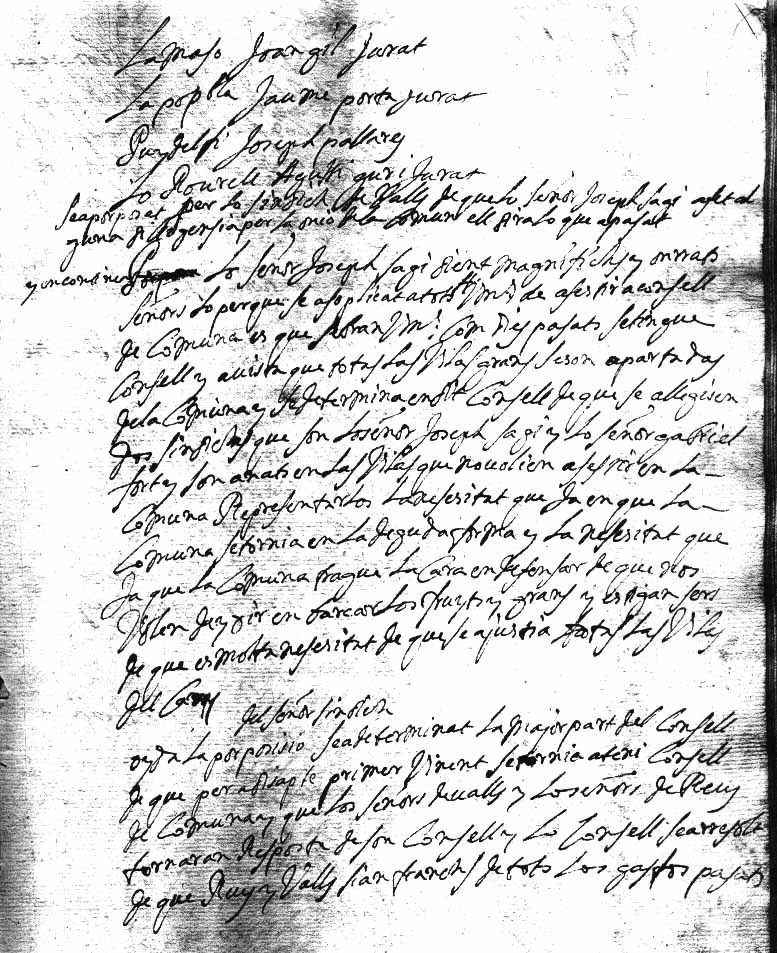 La maso Joan gil Jurat
La pobla Jaume porta Jurat
Puydelfi Joseph pallares
Lo Rourell Agusti guri Jurat
Sea proposat per lo sindich de Valls de que lo señor Joseph sagi a fet al
guna diligensia per la onio de la Comun ell dira lo que a pasat
y encontinent Lo señor Joseph sagi dient magnifichs y onrrats
señors lo perque se a soplicat a tots Vms de asestir a consell
de Comuna es que sabran Vms Com dies pasats se tingue
Consell y avista que totas las Vilas grans se son apartadas
de la Comuna y se determina en dit Consell de que se allegisen
dos sindichs que son lo señor Joseph sagi y lo señor gabriel
fort y son anats en las Vilas que no volien asestir en la
Comuna Representarlos la nesesitat que ja en que la
Comuna se tornia en la deguda forma y la nesesitat que
Ja que la Comuna trague la Cara en defensar de que nos
Volen de venir en barcar los fruyts y grans y estigan sers
de que es molta nesesitat de que se ajustia totas las Vilas
del Camp
del señor sindich
oyda la porposisio sea determinat la major part del Consell
de que per a disapte primer Vinent se tornia a teni Consell
de Comuna y que los señors de valls y lo señors de Reus
tornaran Resposta de son Consell y Lo Consell sea resolt
de que Reus y Valls sian franchs de tots los gastos pasats